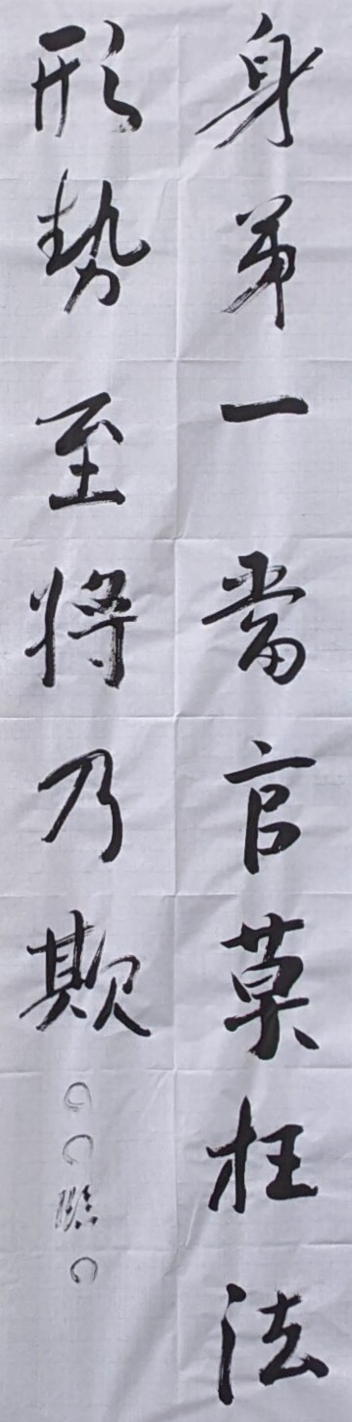 身第一當官莫枉法
形势至将乃欺
○○臨○